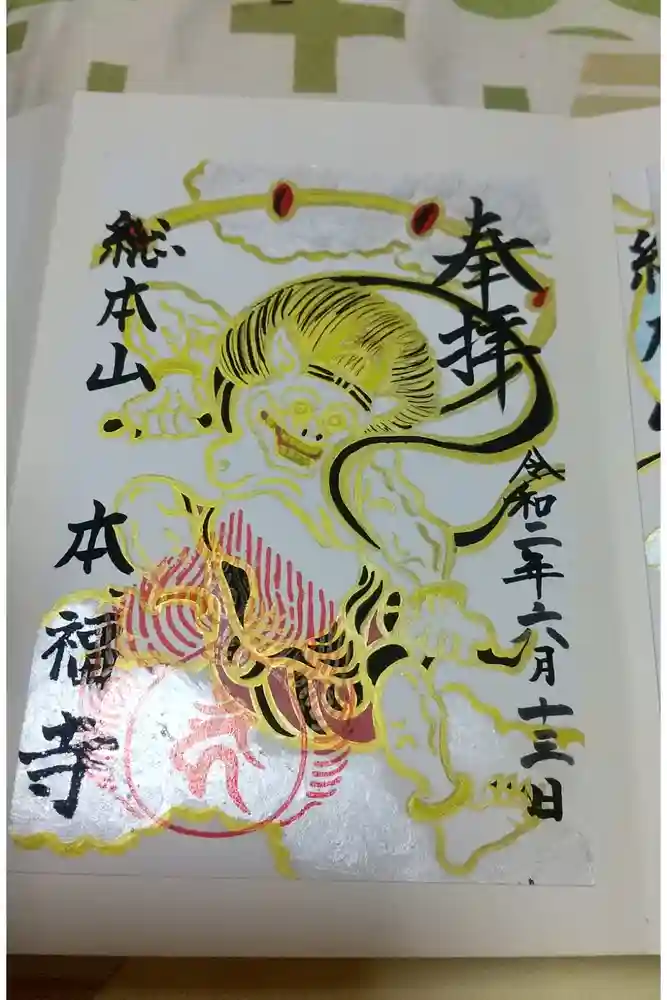 奉拝
令和二年六月十三日
総本山
本福寺
総本